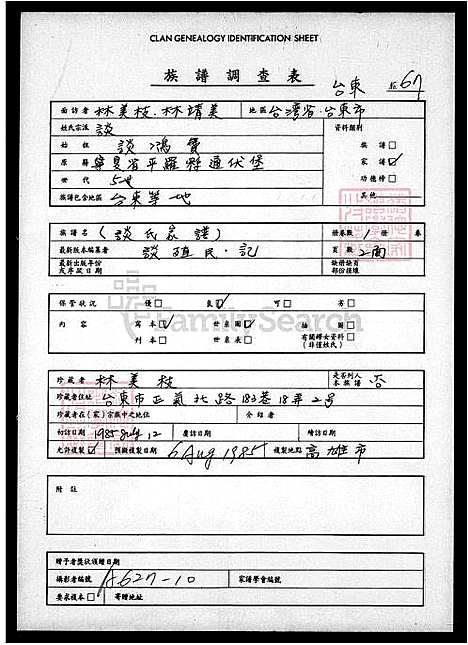 CLAN GENEALOGY IDENTIFICATION SHEET
族譜調查表 台東 67
面訪者 林美枝.林靖美 地區 台湾省.台東市
姓氏宗派 談 資料類別
始祖 談鴻賓 族譜□
原籍 寧夏省平羅縣通伏堡 家譜☑
世代 5世 功德榜□
族譜包含地區 台東等地 其他
族譜名 (談氏家譜) 冊卷數 1 冊 卷
最新版本編纂者 談殖民.記 頁數 2面
最新出版年份或序跋日期 缺冊缺頁部份接補
保管狀況 優□ 良☑ 可□ 劣□
內容 寫本☑ 世系圖☑ 插圖□
刊本□ 世系表□ 有關婦女資料□(非僅姓氏)
FamilySearch
珍藏者 林美枝 是否列入本族譜 否
珍藏者住址 台東市正氣北路183巷18弄2号
珍藏者在(家)宗族中之地位 介紹者
初訪日期 1985 July, 12 覆訪日期 續訪日期
允許複製☑ 預擬複製日期 6 Aug 1985 複製地點 高雄市
附註
贈予者獎狀頒贈日期
攝影者編號 A627-10 家譜學會編號
要求複本□ 寄贈地址